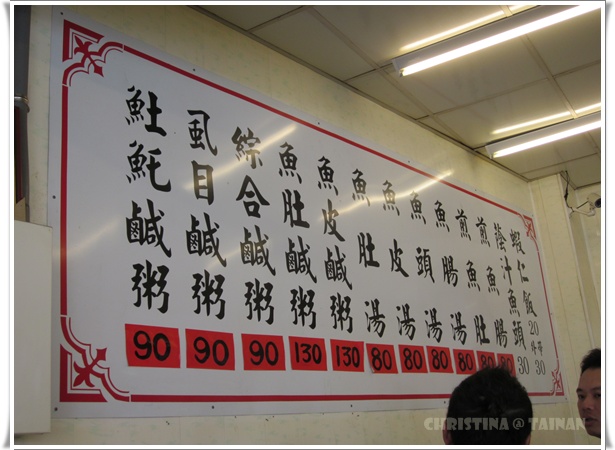 魠鹹粥 90
虱目鹹粥 90
綜合鹹粥 90
魚肚鹹粥 130
魚皮鹹粥 130
魚肚湯 80
魚皮湯 80
魚頭湯 80
魚腸湯 80
煎魚肚 80
煎魚腸 80
汁魚頭 30
蝦仁飯 20 30
CHRISTINA @ TAINAN